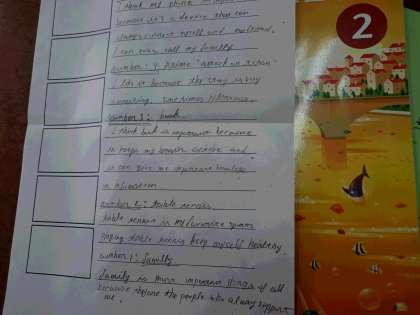 I think my phone is
because it's a device that can
myself and
I can even call my family
number: 4 Anime "attack on titan"
I like it because the story is very
interesting,
number 3: book.
I think book is important because
it helps my brain exercise and
it can give me important knowledge
number 2: table tennis.
table tennis is my favourite sport
playing table tennis keep myself healthy.
number 1: family
family is most important things of all
because they're the people who always support
me.
2